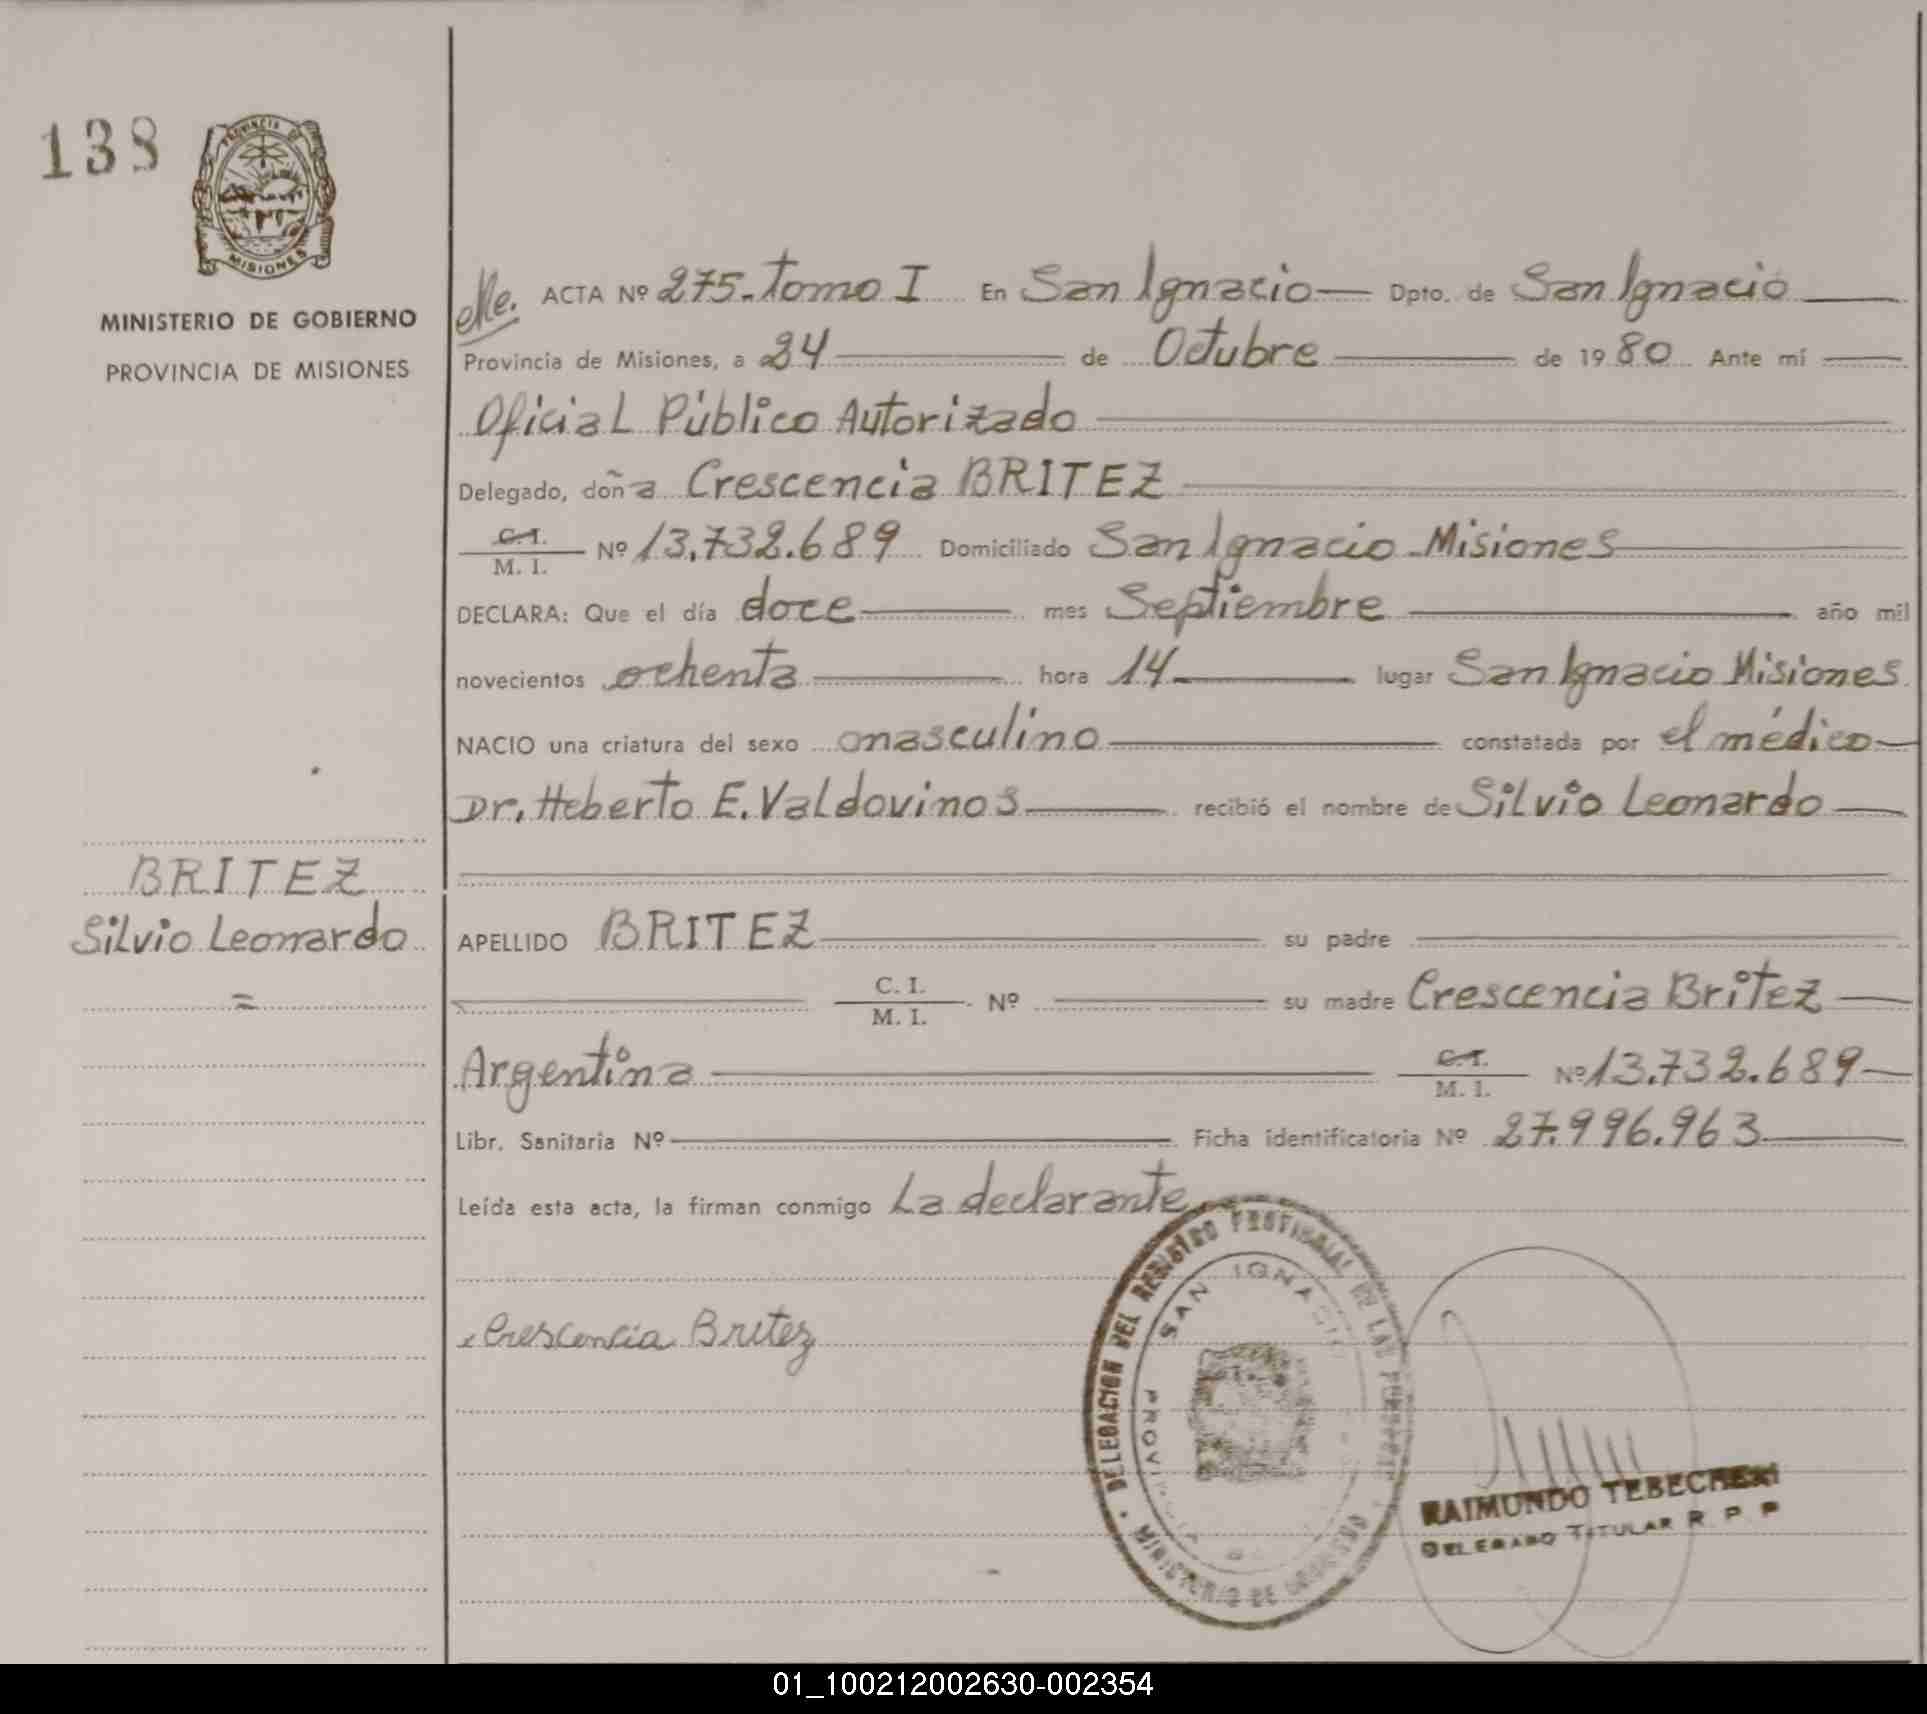 138
PROVINCIA DE
MISIONES
MINISTERIO DE GOBIERNO
PROVINCIA DE MISIONES
ACTA Nº 275-Tomo I En San Ignacio Dpto. de San Ignacio
Provincia de Misiones, a 24 de Octubre de 1980 Ante mí
Oficial Público Autorizado
Delegado, doña Crescencia BRITEZ
C.I.
M. I. Nº 13.732.689 Domiciliado San Ignacio Misiones
DECLARA: Que el día doce mes Septiembre año mil
novecientos ochenta hora 14 lugar San Ignacio Misiones
NACIO una criatura del sexo masculino constatada por el médico
Dr. Heberto E. Valdovinos recibió el nombre de Silvio Leonardo
BRITEZ
Silvio Leonardo
=
APELLIDO BRITEZ su padre
C. I.
M. I. Nº su madre Crescencia Britez
Argentina C.I.
M. I. Nº 13.732.689
Libr. Sanitaria Nº Ficha identificatoria Nº 27.996.963
Leída esta acta, la firman conmigo La declarante
Crescencia Britez
DELEGACION DEL REGISTRO PROVINCIAL DE LAS
SAN IGNACIO
MINISTERIO DE GOBIERNO
RAIMUNDO TEBECHERI
DELEGADO TITULAR R. P. P
01_100212002630-002354